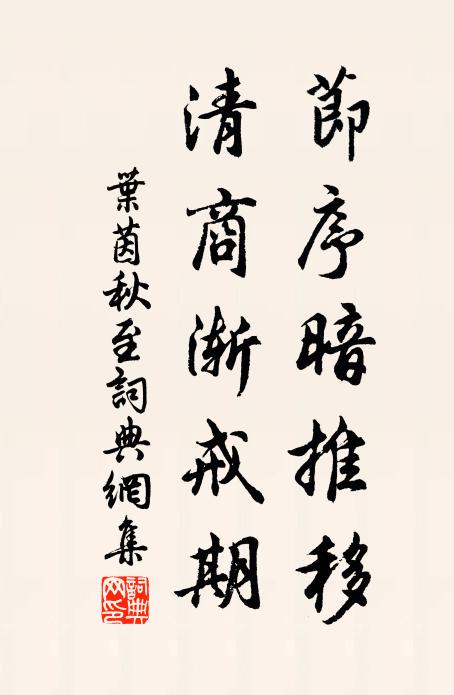 節序暗推移
清商漸戒期
葉茵秋至詞典網集
詞典網印